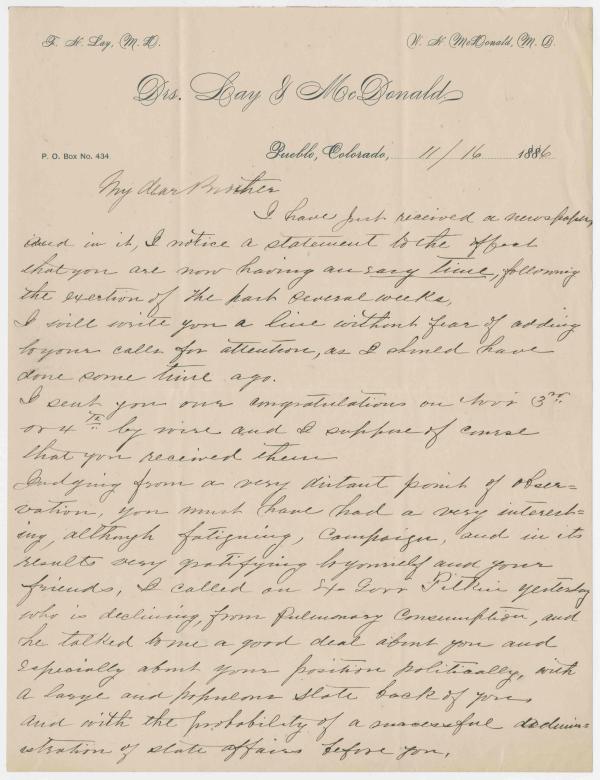 F. H. Lay, M. D. W. H. McDonald, M. D.
Drs. Lay & McDonald
P. O. Box No. 434 Pueblo, Colorado, 11/16 1886
My dear Brother
I have just received a newspaper,
and in it, I notice a statement to the effect
that you are now having an easy time, following
the exertion of the past several weeks,
I will write you a line without fear of adding
to your calls for attention, as I should have
done some time ago.
I sent you our congratulations on Nov 3rd
or 4th by wire and I suppose of course
that you received them
Judging from a very distant point of obser=
vation, you must have had a very interest=
ing, although fatiguing, Campaign, and in its
results very gratifying to yourself and your
friends, I called on Ex Gov Pitkin yesterday
who is declining, from Pulmonary Consumption, and
he talked to me a good deal about you and
Especially about your position politically, with
a large and populous State back of you
and with the probability of a successful adminis=
istration of state affairs before you,